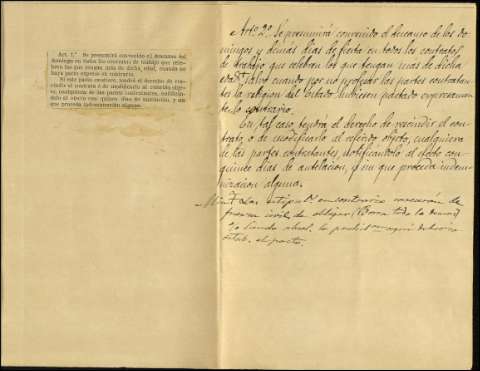 Art. 1.º Se presumirá convenido el descanso del
domingo en todos los contratos de trabajo que cele-
bren los que tengan más de dicha edad, cuando no
haya pacto expreso en contrario.
Si este pacto existiere, tendrá el derecho de res-
cindir el contrato ó de modificarlo al referido objeto,
cualquiera de las partes contratantes, notificán-
dolo al efecto con quince días de antelación, y sin
que proceda indemnización alguna.
Artº 2º Se presumirá convenido el descanso de los Do-
mingos y demás días de fiesta en todos los contratos
de trabajo que celebran los que tengan mas de dicha
edad. Salvo cuando por no profesar las partes contratan-
tes la religion del Estado hubiesen pactado expresamen-
te lo contrario.
En tal caso, tendrá el derecho de rescindir el con-
trato, o de modificarlo al referido objeto, cualquiera
de las partes contratantes, notificándolo al efecto con
quince días de antelacion, y sin que proceda indem-
nizacion alguna.
en contrario carecerán de
fuerza civil de obligar
el pacto.